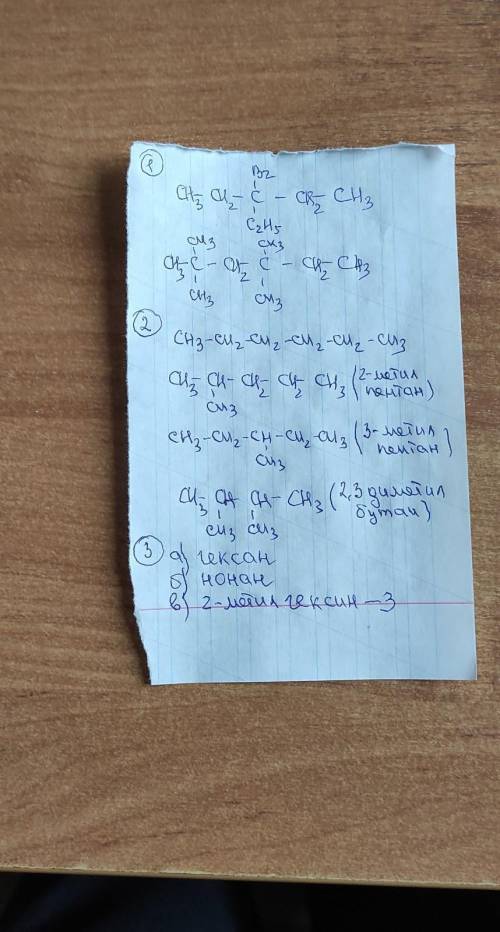 1
Br
CH3-CH2-C-CH2-CH3
C2H5
CH3 CH3
CH3-C-CH2-C-CH2-CH3
CH3 CH3
2
CH3-CH2-CH2-CH2-CH2-CH3
CH3-CH-CH2-CH2-CH3 (2-метил
CH3 пентан)
CH3-CH2-CH-CH2-CH3 (3-метил
CH3 пентан)
CH3-CH-CH-CH3 (2,3 диметил
CH3 CH3 бутан)
3 а) гексан
б) нонан
в) 2-метил гексин-3